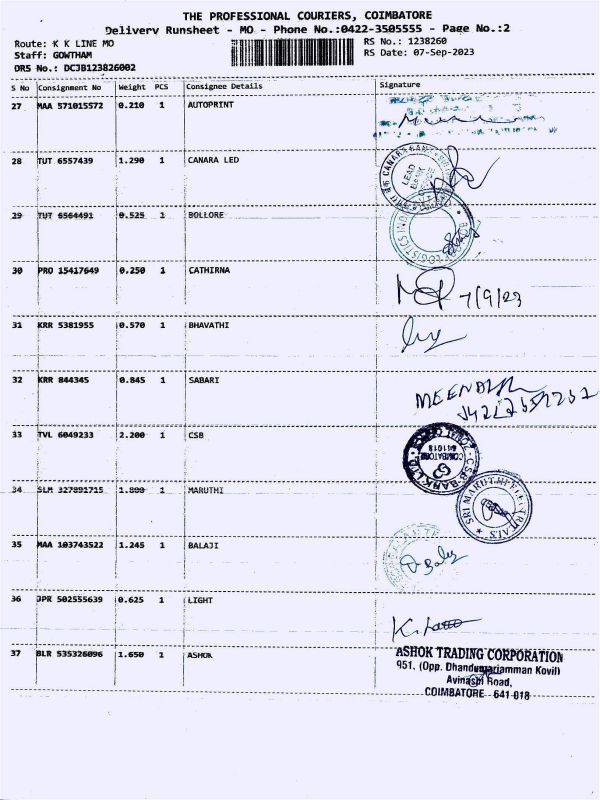 THE PROFESSIONAL COURIERS, COIMBATORE
Delivery Runsheet - MO - Phone No.:0422-3505555 - Page No.:2
Route: K K LINE MO
RS No.: 1238260
Staff: GOWTHAM
RS Date: 07-Sep-2023
DRS No.: DCJB123826002
S No Consignment No Weight PCS Consignee Details Signature
27 MAA 571015572 0.210 1 AUTOPRINT
28 TUT 6557439 1.290 1 CANARA LED
LEAD BANK
29 TUT 6564491 0.525 1 BOLLORE
30 PRO 15417649 0.250 1 CATHIRNA
7/9/23
31 KRR 5381955 0.570 1 BHAVATHI
32 KRR 844345 0.845 1 SABARI
33 TVL 6049233 2.200 1 CSB
CSB BANK LTD
COIMBATORE
641018
34 SLM 327891715 1.800 1 MARUTHI
SRI MARUTHI ELECTRICALS
35 MAA 103743522 1.245 1 BALAJI
36 JPR 502555639 0.625 1 LIGHT
37 BLR 535326096 1.650 1 ASHOK
ASHOK TRADING CORPORATION
951, (Opp. Dhandumariamman Kovil)
Avinashi Road,
COIMBATORE - 641 018